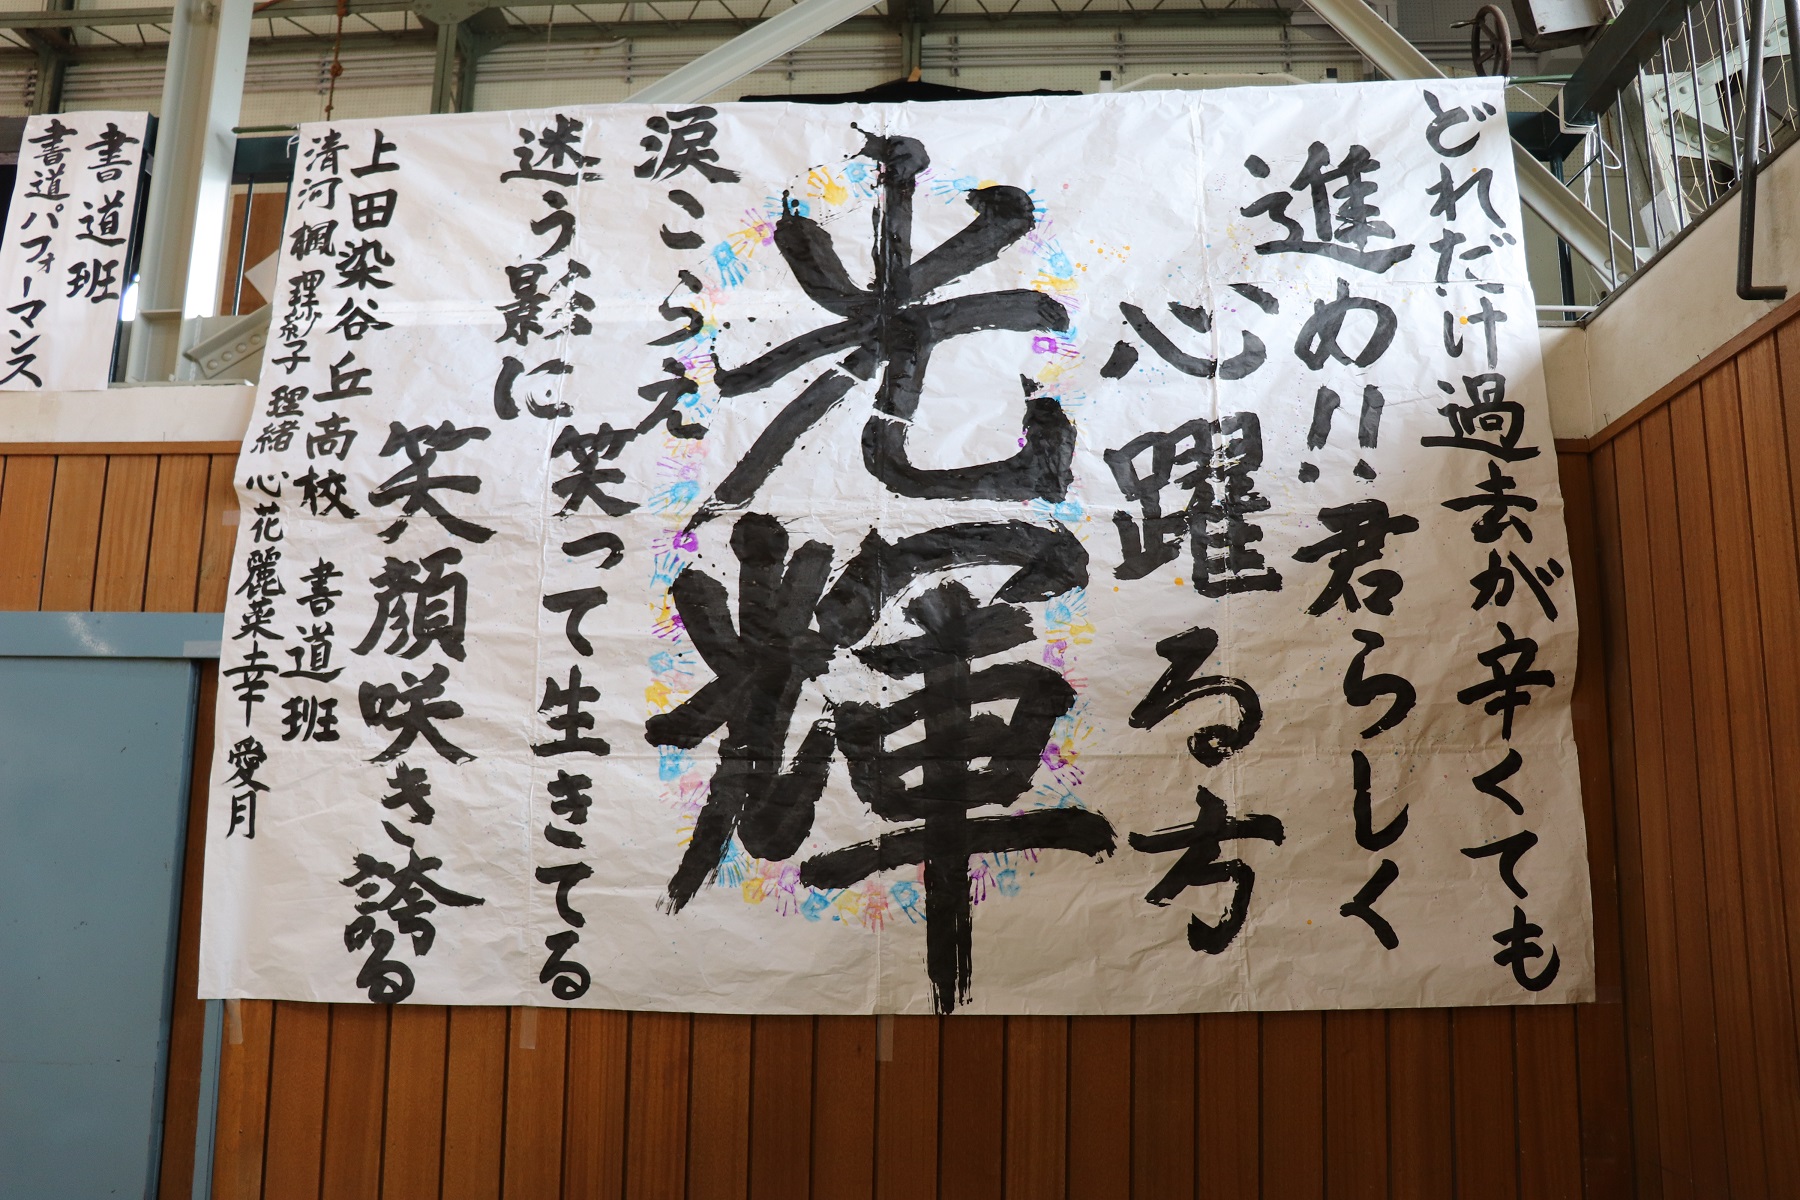 どれだけ過去が辛くても
進め!!君らしく
心躍る方
光輝
涙こらえ
笑って生きてる
迷う影に
笑顔咲き誇る
上田染谷丘高校 書道班
清河 楓 理紗子 理緒 心花 麗菜 幸 愛月
書道班
書道パフォーマンス